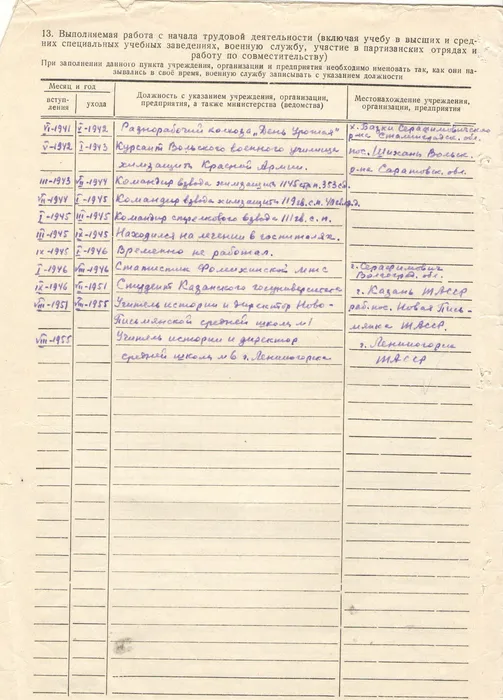 13. Выполняемая работа с начала трудовой деятельности (включая учебу в высших и сред-
них специальных учебных заведениях, военную службу, участие в партизанских отрядах и
работу по совместительству)
При заполнении данного пункта учреждения, организации и предприятия необходимо именовать так, как они на-
зывались в своё время, военную службу записывать с указанием должности
Месяц и год
вступ-
ления
ухода
Должность с указанием учреждения, организации,
предприятия, а также министерства (ведомства)
Местонахождение учреждения,
организации, предприятия
VI-1941 I-1942 Разнорабочий колхоза „День Урожая" х. Бацки Серафимовичского
р-на Сталинградск. обл.
V-1942 I-1943 Курсант Вольского военного училища пос. Шиханы Вольск.
химзащиты Красной Армии. р-на Саратовск. обл.
III-1943 1944 Командир взвода химзащиты 1145 стр. п. 353 сд.
VII-1944 I-1945 Командир взвода химзащиты 119 гв. с.п.
I-1945 III-1945 Командир стрелкового взвода 111 гв. с. п.
III-1945 IX-1945 Находился на лечении в госпиталях.
IX-1945 I-1946 Временно не работал.
I-1946 VIII-1946 Статистик Фомихинской мтс г. Серафимович
Волгоград. обл.
IX-1946 VII-1951 Студент Казанского госуниверситета г. Казань ТАССР
VIII-1951 VIII-1955 Учитель истории и директор Ново- раб. пос. Новая Пись-
Письмянской средней школы №1 мянка ТАССР.
VIII-1955 Учитель истории и директор г. Лениногорск
средней школы №6 г. Лениногорска ТАССР